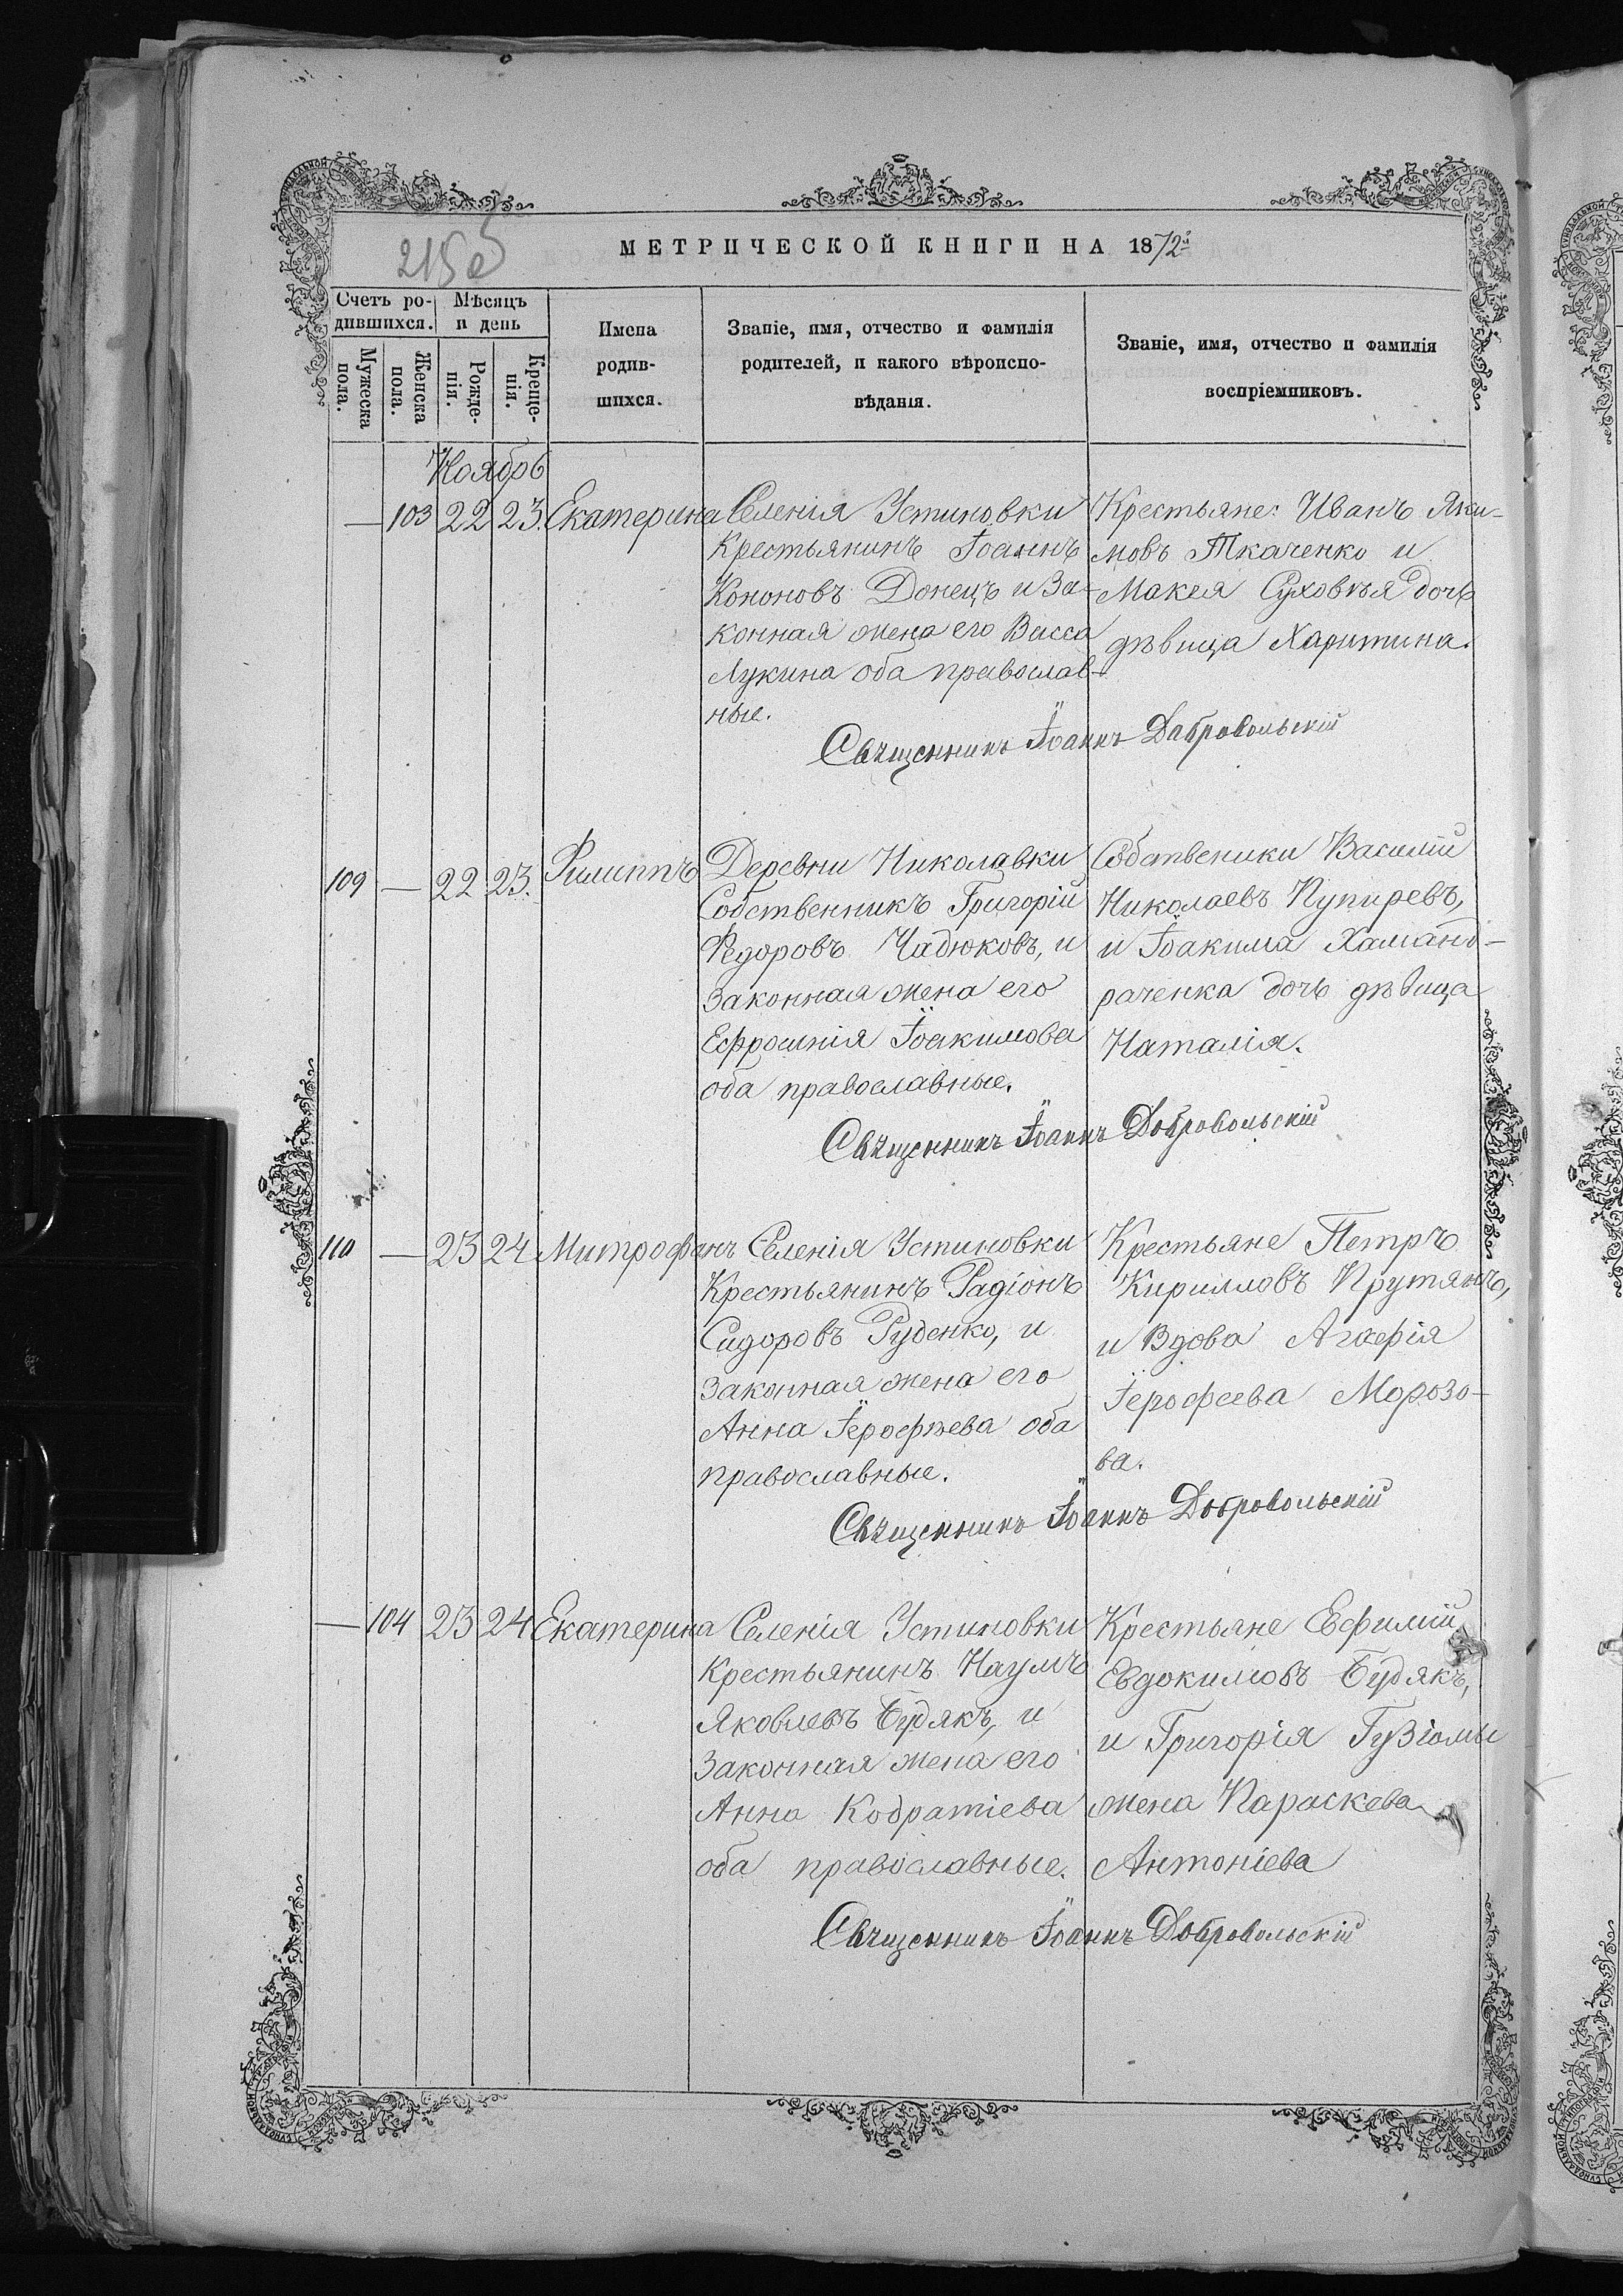 МЕТРИЧЕСКОЙ КНИГИ НА 1872й
Счетъ ро-
дившихся.
Мѣсяцъ
и день
Мужеска
пола.
Женска
пола.
Рожде-
нія.
Креще-
нія.
Имена
родив-
шихся.
Званіе, имя, отчество и фамилія
родителей, и какого вѣроиспо-
вѣданія.
Званіе, имя, отчество и фамилія
воспріемниковъ.
Ноябрь
— 103 22 23. Екатерина
Селенія Устиновки
Крестьянинъ Іоаннъ
Кононовъ Донецъ и За-
конная жена его Васса
Лукина оба православ-
ные.
Крестьяне: Иванъ Яки-
мовъ Ткаченко и
Макея Суховѣя дочь
дѣвица Харитина.
Священникъ Іоаннъ Добровольскій
109 — 22 23. Филиппъ
Деревни Николавки
Собственникъ Григорій
Федоровъ Чадюковъ, и
Законная жена его
Ефросинія Іоакимова
оба православные.
Собственики Василій
Николаевъ Пупиревъ,
и Іоакима Хамано-
раченка дочь дѣвица
Наталія.
Священникъ Іоаннъ Добровольскій
110 — 23 24 Митрофанъ
Селенія Устиновки
Крестьянинъ Радіонъ
Сидоровъ Руденко, и
Законная жена его
Анна Іерофѣева оба
православные.
Крестьяне Петръ
Кирилловъ Прутянъ,
и Вдова Агафія
Іерофеева Морозо-
ва.
Священникъ Іоаннъ Добровольскій
— 104 23 24 Екатерина
Селенія Устиновки
Крестьянинъ Наумъ
Яковлевъ Будякъ, и
Законная жена его
Анна Кодратіева
оба православные.
Крестьяне Ефимій
Евдокимовъ Будякъ,
и Григорія Гузіомы
жена Параскева
Антоніева
Священникъ Іоаннъ Добровольскій